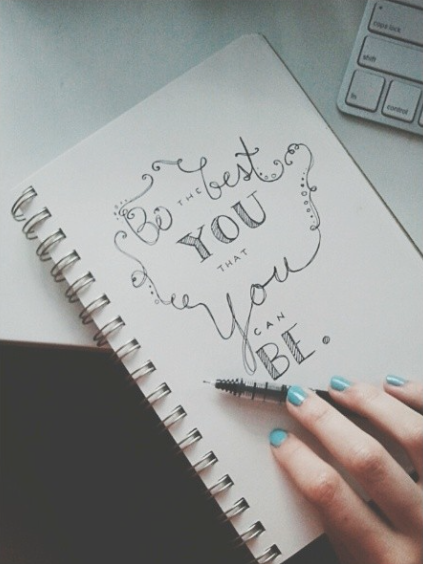 Be THE best
YOU
THAT
You
CAN
BE.
caps lock
shift
fn
control